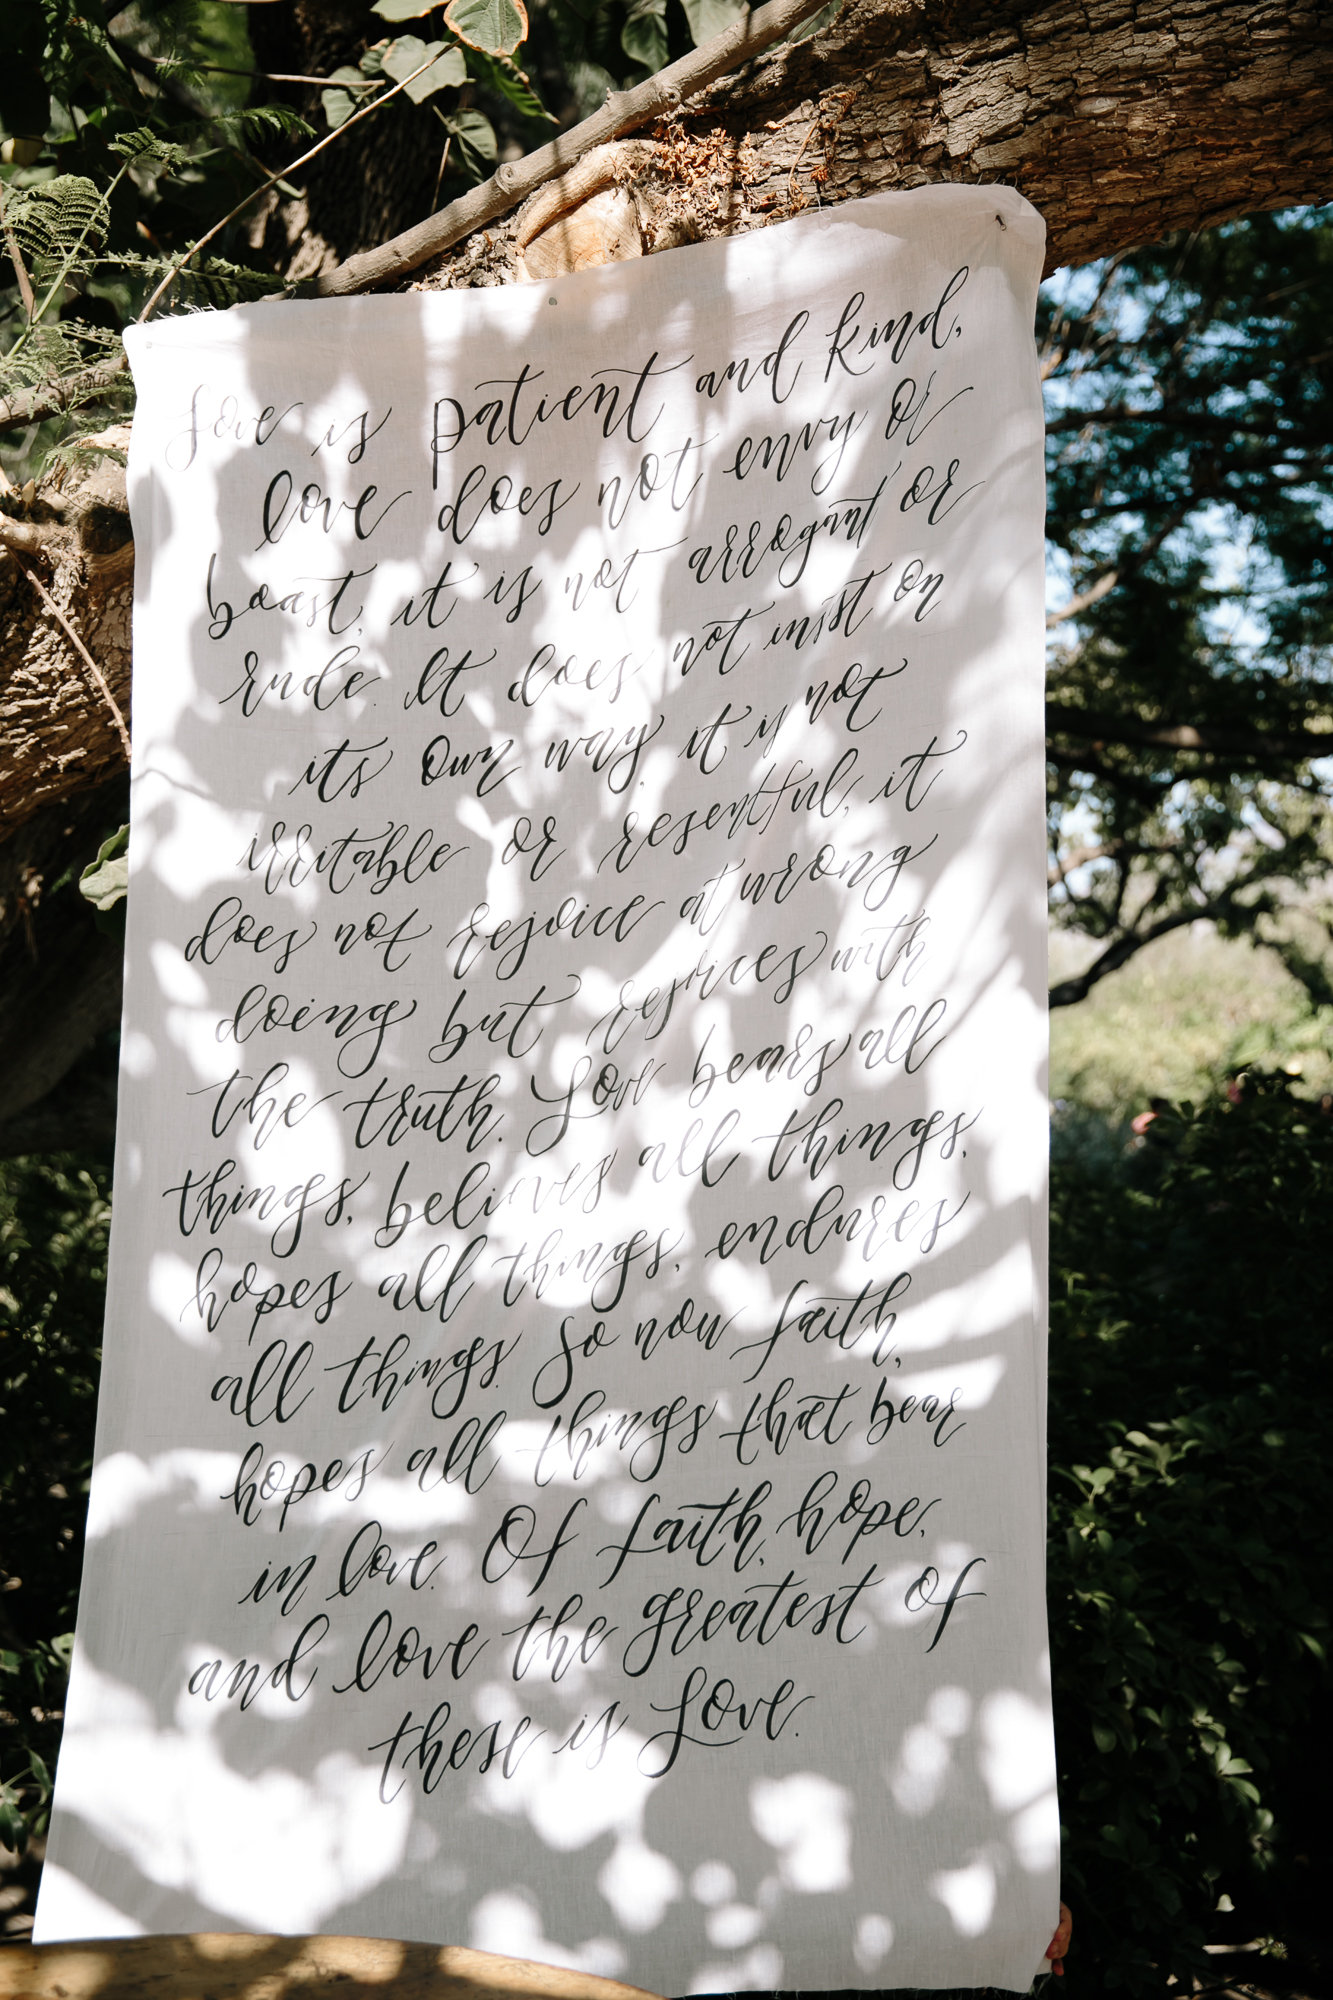 Love is patient and kind,
love does not envy or
boast, it is not arrogant or
rude. It does not insist on
its own way, it is not
irritable or resentful, it
does not rejoice at wrong
doing but rejoices with
the truth. Love bears all
things, believes all things,
hopes all things, endures
all things. So now faith,
hopes all things that bear
in love. Of faith, hope,
and love the greatest of
these is Love.